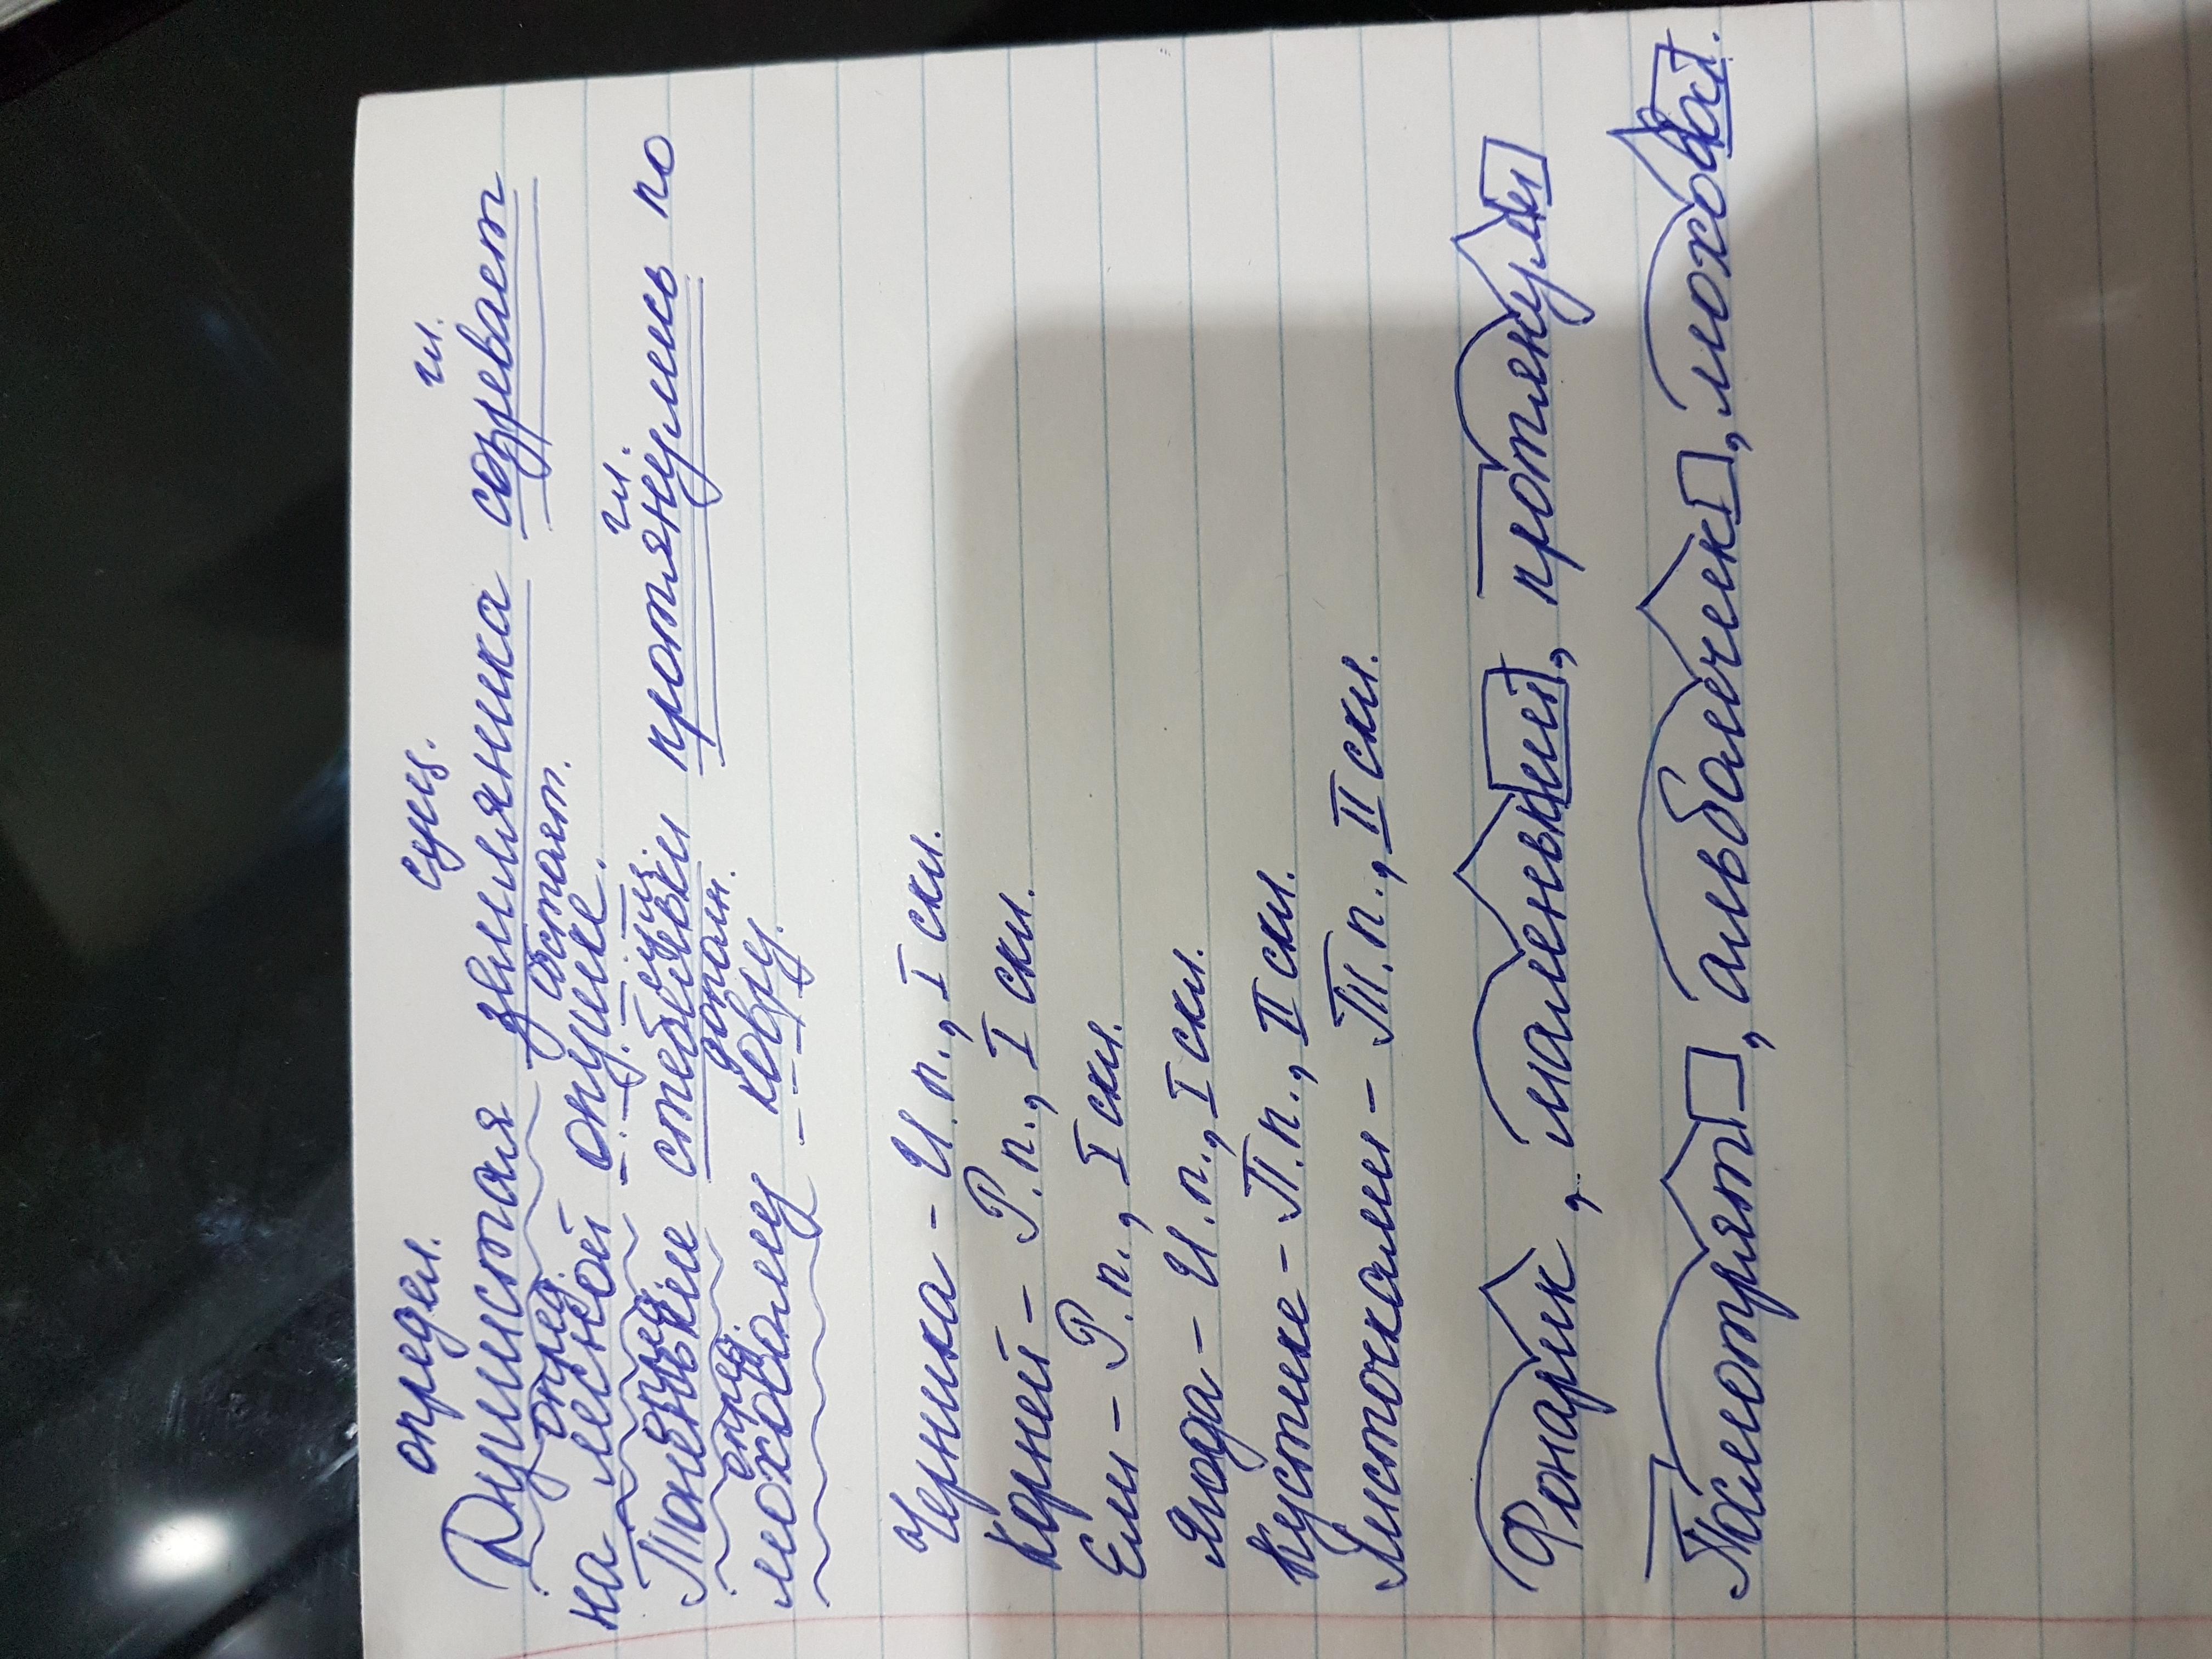 определ. сущ. гл.
Душистая земляника созревает
опред. обстоят.
на лесной опушке.
опред. сущ. гл.
Тоненькие стебельки протянулись по
опред. дополн.
моховому ковру.
Черника - И.п., I скл.
Корней - Р.п., I скл.
Ели - Р.п., I скл.
Ягода - И.п., I скл.
Кустике - П.п., II скл.
Листочками - Т.п., II скл.
Фонарик, маленький, протянули
Посмотрят, альбомчик, моховой.